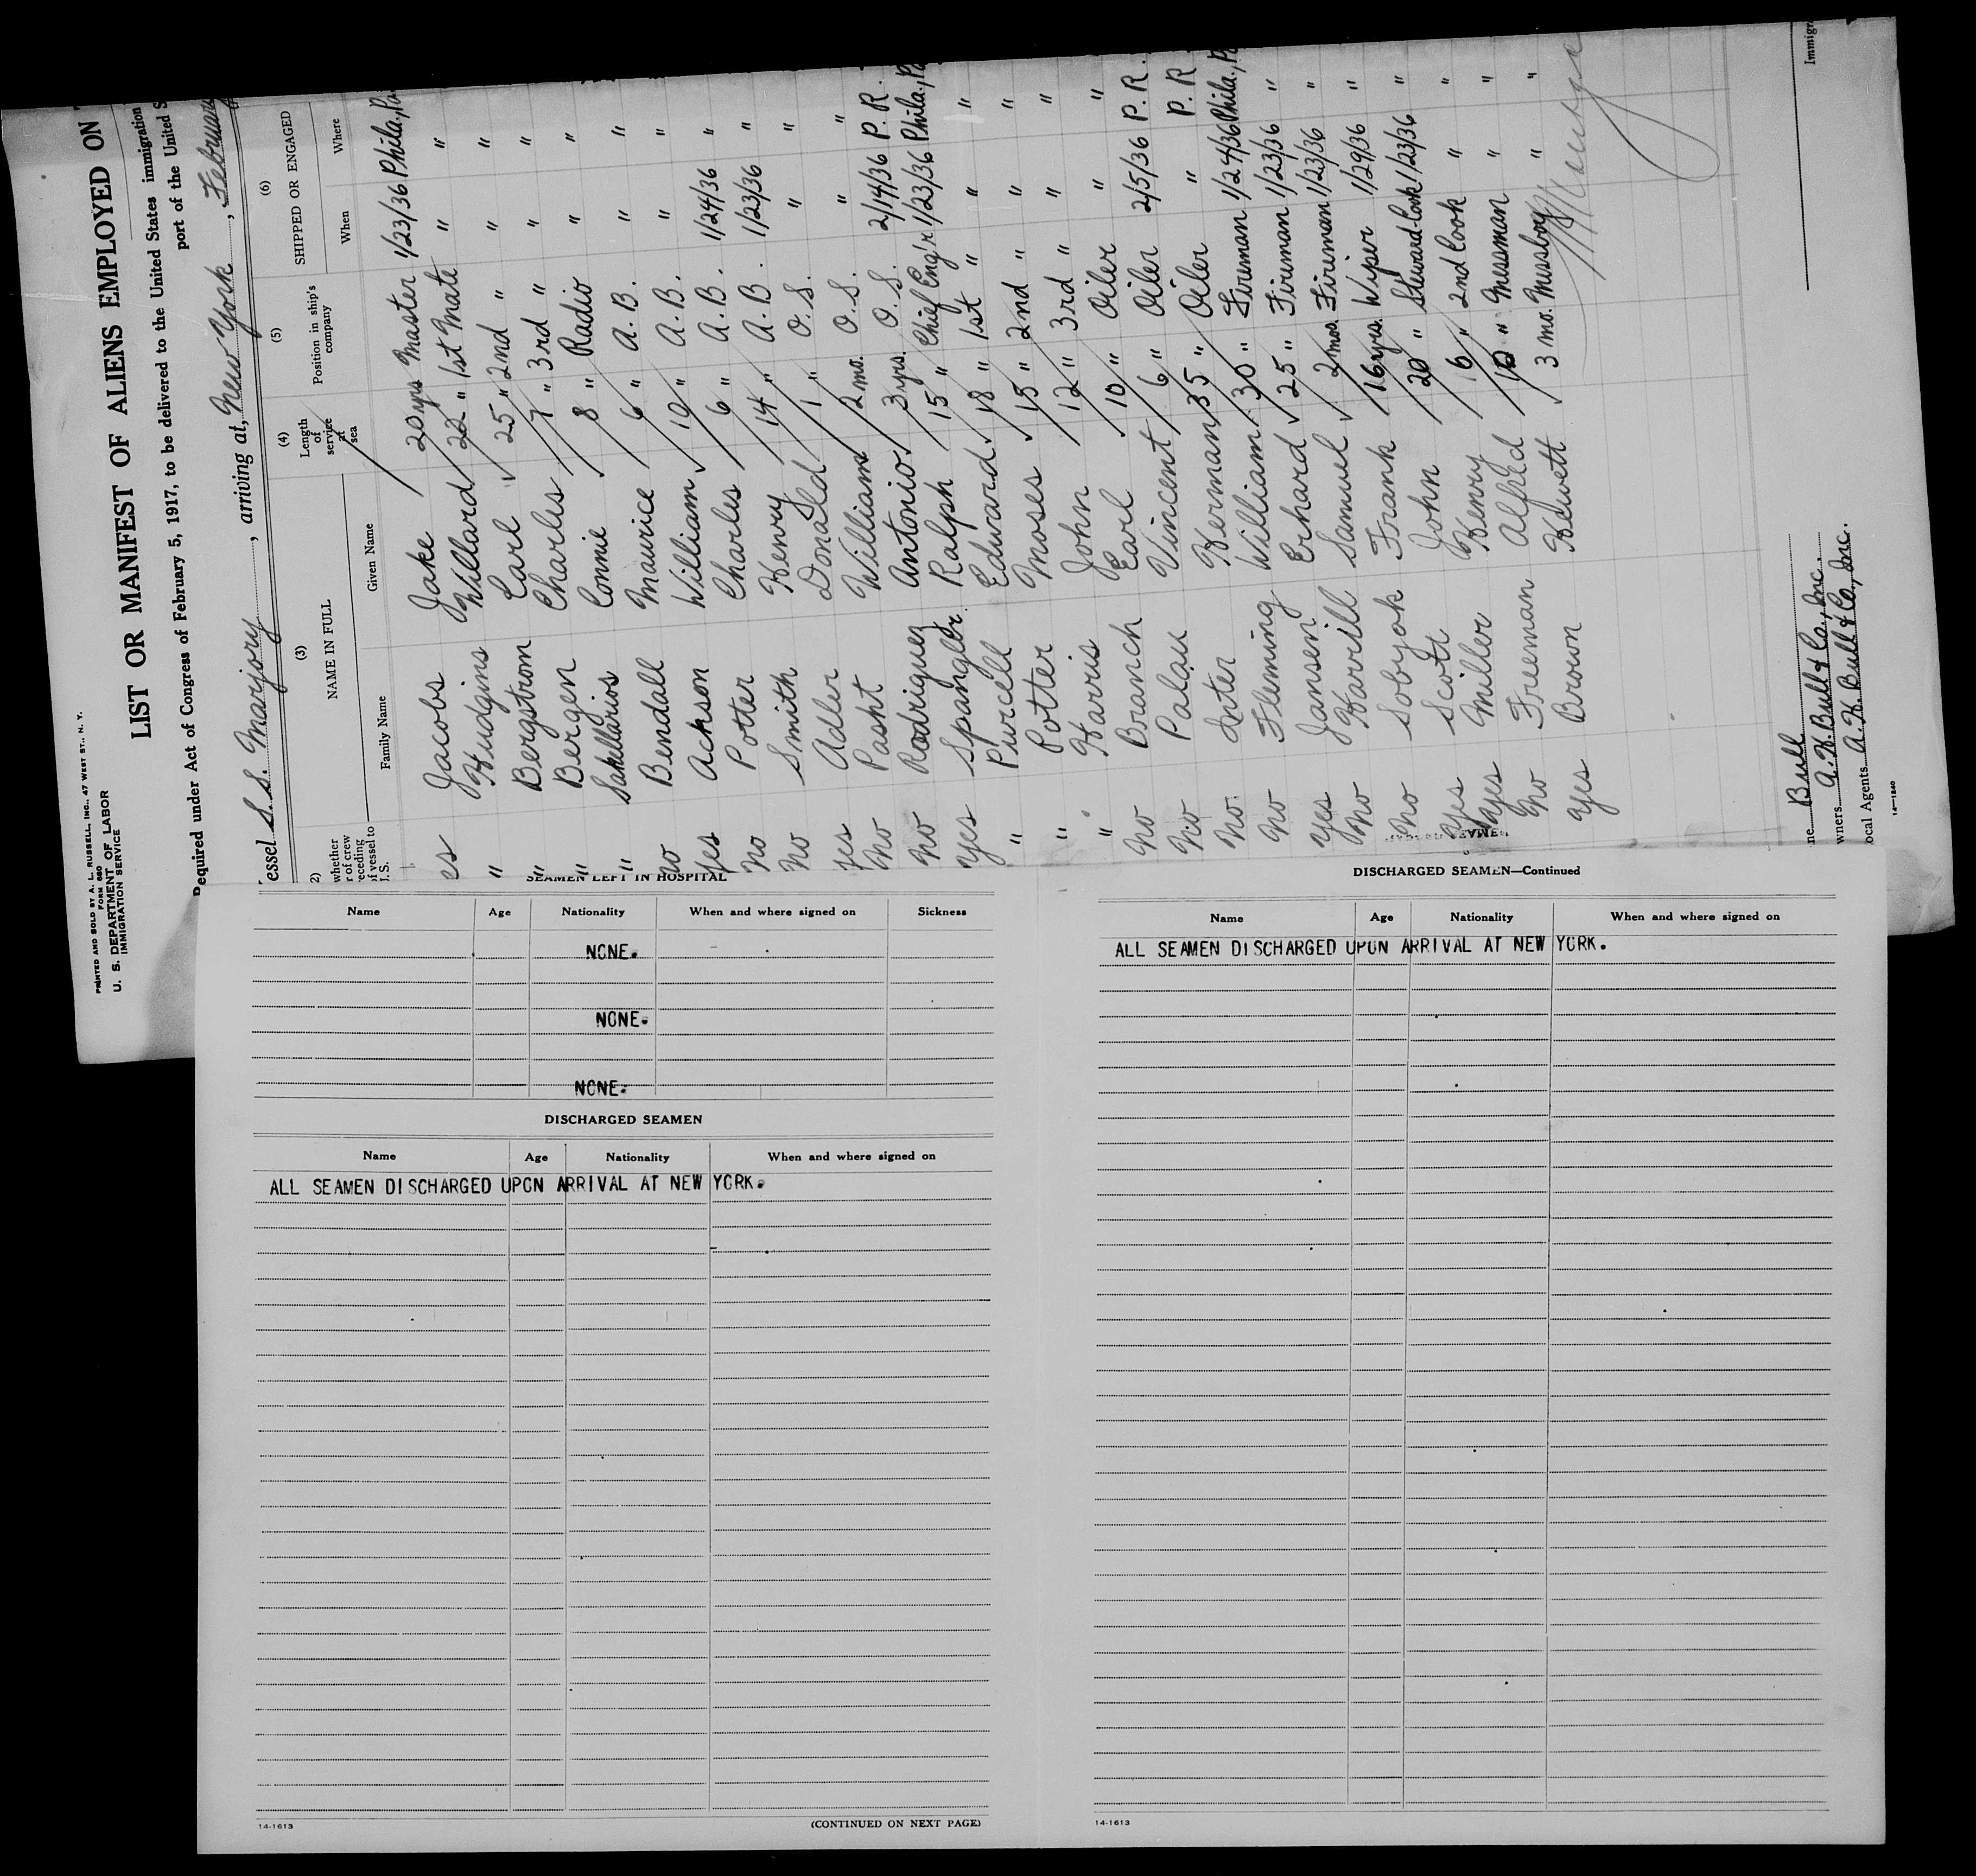 PRINTED AND SOLD BY A. L. RUSSELL, INC., 47 WEST ST., N. Y.
FORM 680
U. S. DEPARTMENT OF LABOR
IMMIGRATION SERVICE
LIST OR MANIFEST OF ALIENS EMPLOYED ON
Required under Act of Congress of February 5, 1917, to be delivered to the United States immigration
port of the United S
essel S.S. Marjory, arriving at, New York, February
2) whether r of crew receding f vessel to U.S.
(3) NAME IN FULL
Family Name Given Name
(4) Length of service at sea
(5) Position in ship's company
(6) SHIPPED OR ENGAGED
When Where
es Jacobs Jake 20 yrs Master 1/23/36 Phila., Pa
" Hudgins Willard 22 " 1st Mate " "
" Bergstrom Carl 25 " 2nd " " "
" Bergen Charles 7 " 3rd " " "
" Sakellarios Connie 8 " Radio " "
no Bendall Maurice 6 " A.B. " "
yes Ackson William 19 " A.B. " "
no Potter Charles 6 " A.B. 1/24/36 "
no Smith Henry 14 " A.B. 1/23/36 "
yes Adler Donald 1 " O.S. " "
no Pasht William 2 mo. O.S. " "
no Rodriguez Antonio 3 yrs. O.S. 2/14/36 P.R.
yes Spangler Ralph 15 " Chief Eng'r 1/23/36 Phila., Pa
" Purcell Edward 18 " 1st " " "
" Potter Moses 15 " 2nd " " "
" Harris John 12 " 3rd " " "
no Branch Earl 10 " Oiler " "
no Palau Vincent 6 " Oiler 2/5/36 P.R.
no Inter Herman 35 " Oiler " P.R
no Fleming William 30 " Fireman 1/24/36 Phila., Pa
yes Jansen Erhard 25 " Fireman 1/23/36 "
no Harrill Samuel 2 mos. Fireman 1/23/36 "
no Sobyok Frank 16 yrs. Wiper 1/29/36 "
yes Scott John 20 " Steward-Cook 1/23/36 "
yes Miller Henry 6 " 2nd Cook " "
no Freeman Alfred 10 " Messman " "
yes Brown Hewett 3 mo. Messboy " "
ne Bull
wners A. H. Bull & Co., Inc.
ocal Agents A. H. Bull & Co., Inc.
Immigr
14-1240
SEAMEN LEFT IN HOSPITAL
Name Age Nationality When and where signed on Sickness
NONE.
NONE.
NONE.
DISCHARGED SEAMEN
Name Age Nationality When and where signed on
ALL SEAMEN DISCHARGED UPON ARRIVAL AT NEW YORK.
14-1613
(CONTINUED ON NEXT PAGE)
DISCHARGED SEAMEN—Continued
Name Age Nationality When and where signed on
ALL SEAMEN DISCHARGED UPON ARRIVAL AT NEW YORK.
14-1613